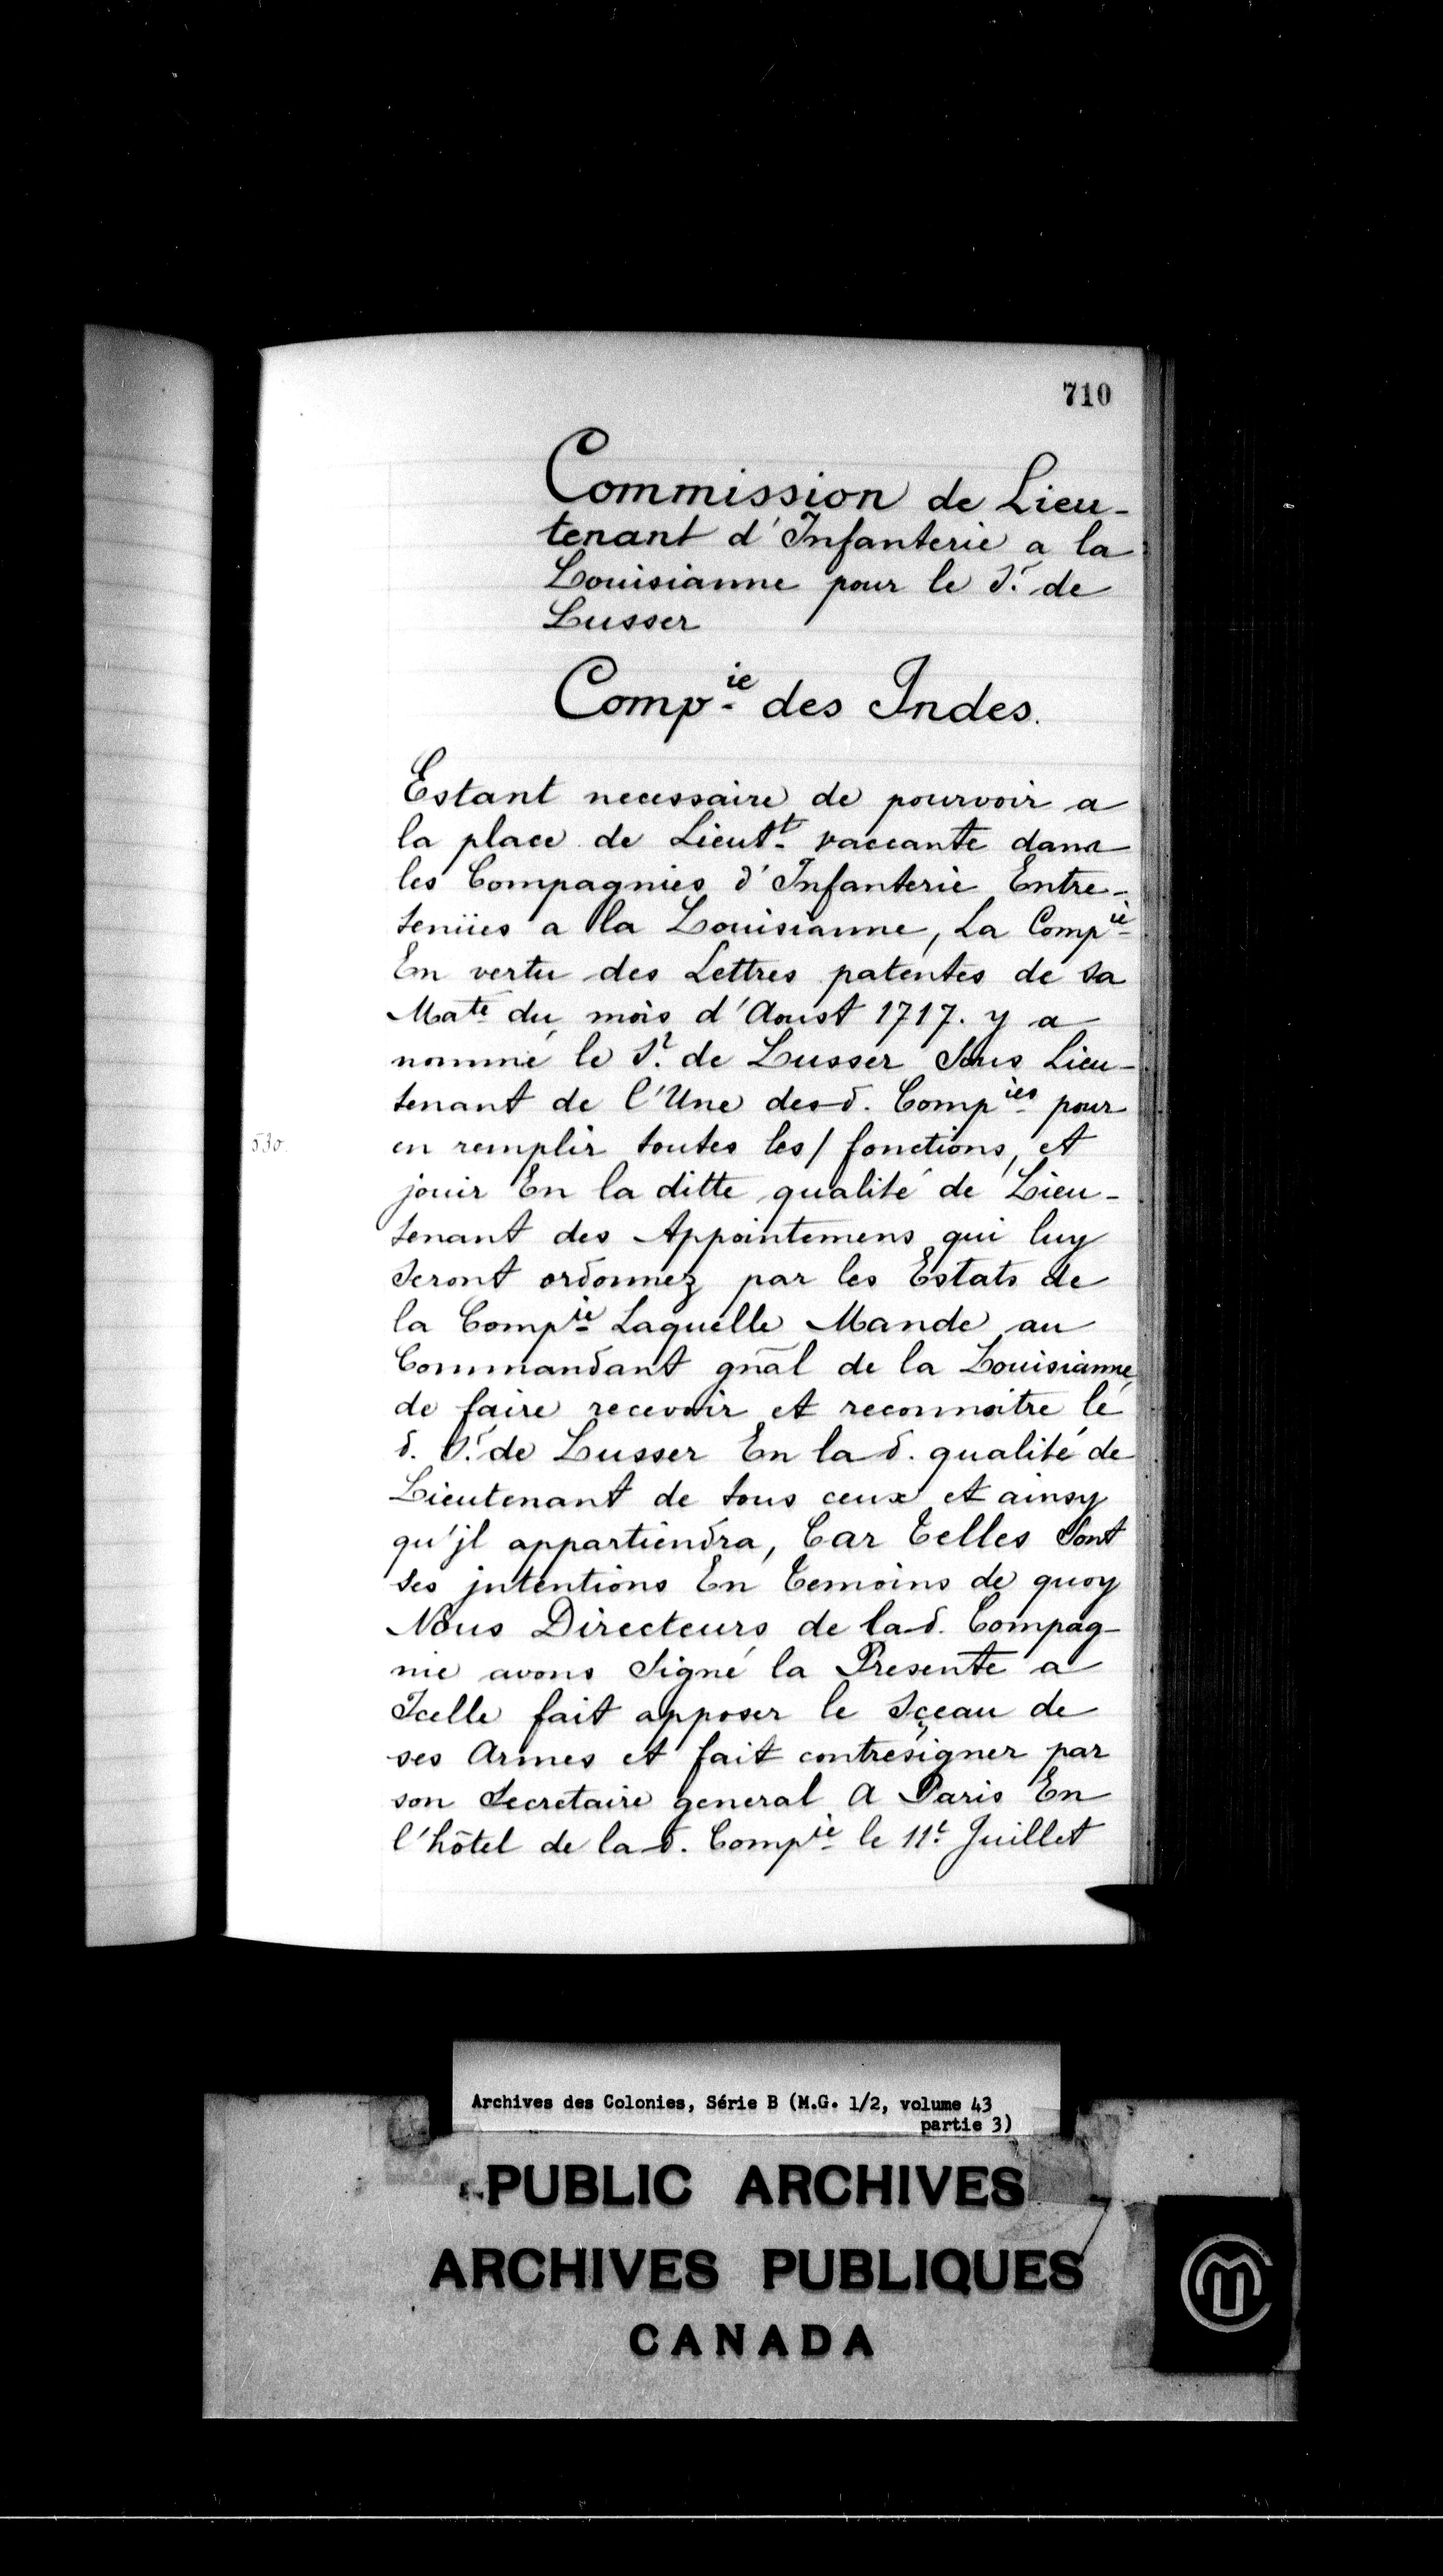 710
Commission de Lieu-
tenant d'Infanterie a la
Louisianne pour le Sr. de
Lusser
Compie des Indes.
Estant necessaire de pourvoir a
la place de Lieutt. vaccante dans
les Compagnies d'Infanterie Entre-
tenües a la Louisianne, La Compie
En vertu des Lettres patentes de sa
Maté du mois d'Aoust 1717. y a
nommé le Sr. de Lusser Sous Lieu-
tenant de l'Une desd. Compies pour
530.
en remplir toutes les / fonctions, et
jouir En la ditte qualité de Lieu-
tenant des Appointemens qui luy
seront ordonnez par les Estats de
la Compie Laquelle Mande au
Commandant gnãl de la Louisianne,
de faire recevoir et reconnoitre le
d. Sr. de Lusser En lad. qualité de
Lieutenant de tous ceux et ainsy
qu'jl appartiendra, Car Telles Sont
ses jntentions En Temoins de quoy
Nous Directeurs de lad. Compag-
nie avons Signé la Presente a
Icelle fait apposer le Sçeau de
ses Armes et fait contresigner par
son Secretaire general A Paris En
l'hôtel de lad. Compie le 11e. Juillet
Archives des Colonies, Série B (M.G. 1/2, volume 43
partie 3)
PUBLIC ARCHIVES
ARCHIVES PUBLIQUES
CANADA